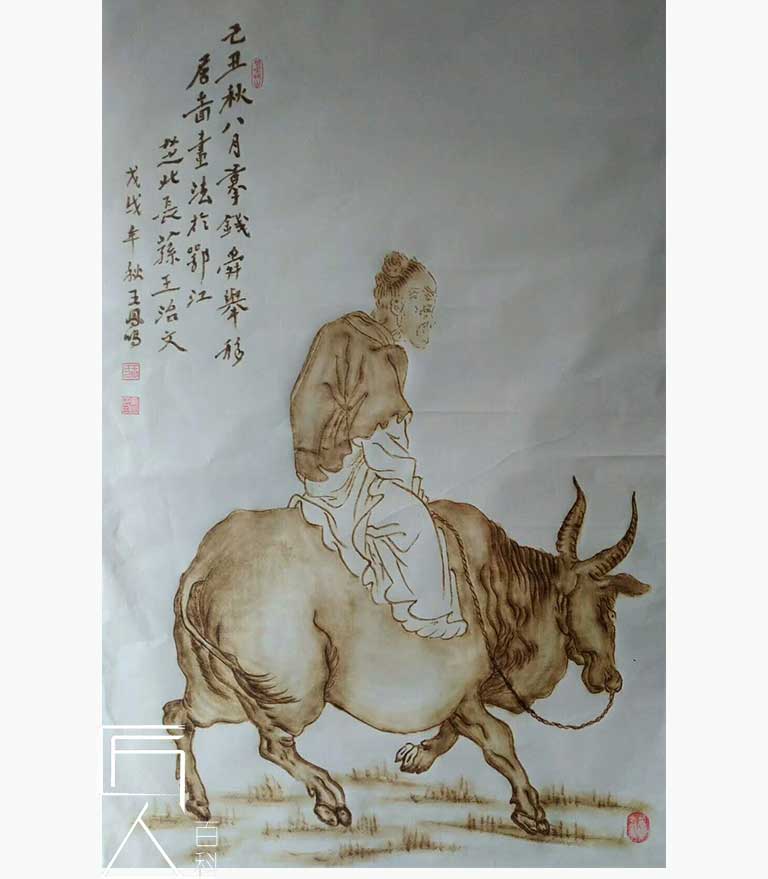 己丑秋八月摹錢舜舉移
居啚畫法於鄂江
芝北長蓀王治文
戊戌年秋王鳳鳴
百科